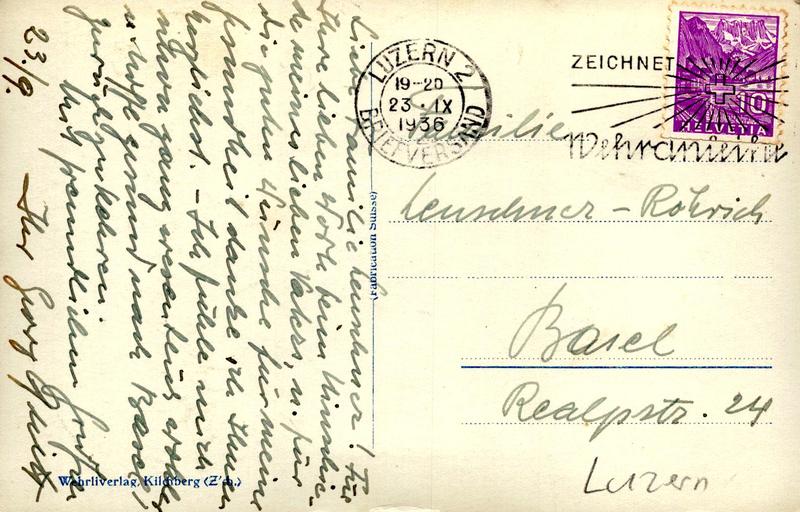 Liebe Familie Leuschner! Für
Ihre lieben Worte beim Hinschie-
de meines lieben Vaters, u. für
die guten Wünsche für meine
Gesundheit danke ich Ihnen
herzlichst. – Ich fühle mich
schon ganz wesentlich wohler
u. hoffe gesund nach Basel
zurückzukehren.
Mit freundlichen Grüßen
Ihr Georg
23./9.
Wehrliverlag, Kilchberg (Z'ch.)
(Fabrication Suisse)
LUZERN 2
19-20
23.IX
1936
BRIEFVERSAND
ZEICHNET
Wehranleihe
10
HELVETIA
Familie
Leuschner-Röhrich
Basel
Realpstr. 24
Luzern